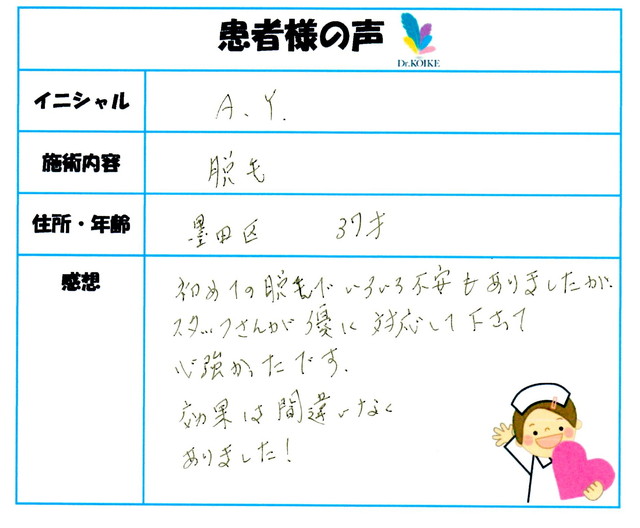 患者様の声
Dr.KOIKE
イニシャル A.Y.
施術内容 脱毛
住所・年齢 墨田区 37才
感想
初めての脱毛でいろいろ不安もありましたが、
スタッフさんが優に対応して下さって
心強かったです.
効果は間違いなく
ありました!